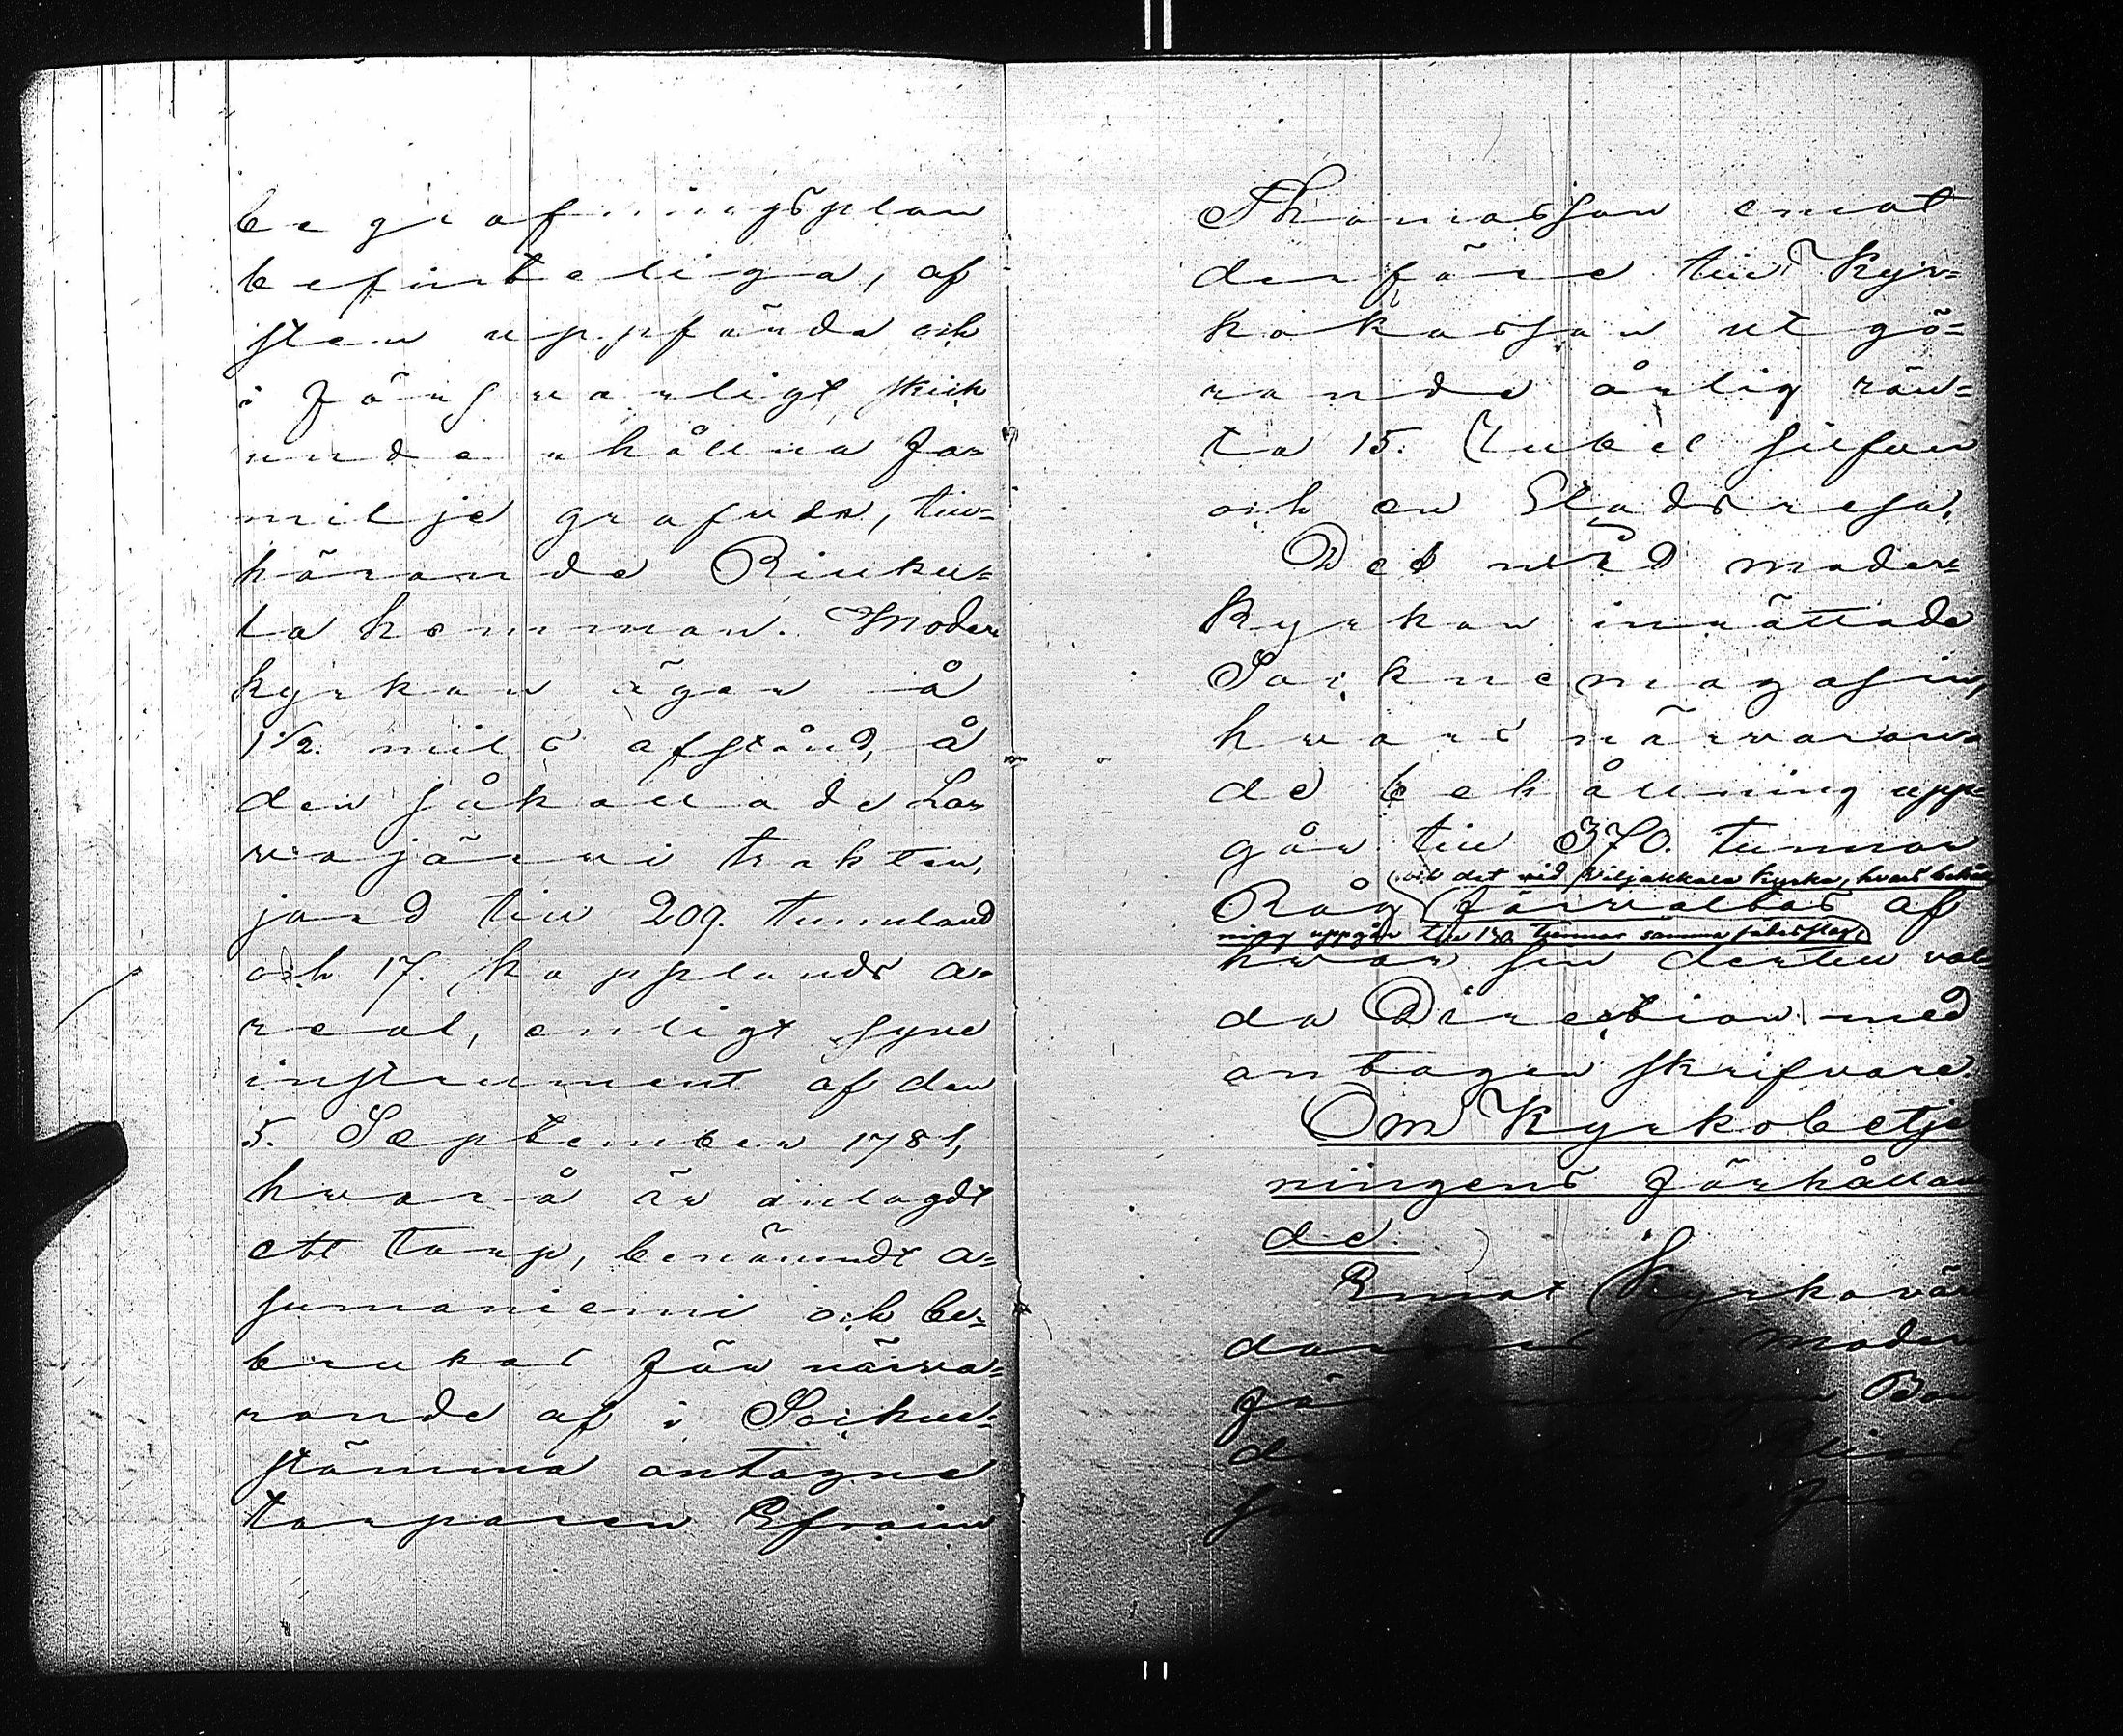 begrafningsplan
befinteliga, af
sten uppförda och
i försvarligt skick
underhållna fa=
milje grafvar, till=
hörande Riuku=
la hemman. Moder
kyrkan äger å
1 1/2 mils afstånd, å
den såkallade La=
vajärvi trakten,
jord till 209. tunnland
och 17. kapplands a=
real, enligt syne
instrument af den
5. September 1781,
hvarå är anlagdt
ett torp, benämndt a=
sumaniemi och be=
brukas för närva=
rande af i Sockne=
stämma antagne
torparen Efraim
Thomasson emot
derföre till Kyr=
kokassan utgö=
rande årlig rän=
ta 15. Rubel silfver
och en Stadsresa.
Det wid moder=
kyrkan inrättade
Socknemagasin,
hvars närvaran=
de behållning upp
går till 370. tunnor
och det vid Viljakkala kyrka, hvars behåll
Råg förvaltas af
ning uppgår till 130 tunnor samma sädesslag
hvar sin dertill val=
da Direction med
antagen skrifvare.
Om Kyrkobetje
ningens förhållan
de.
Emot Kyrkovär
moder